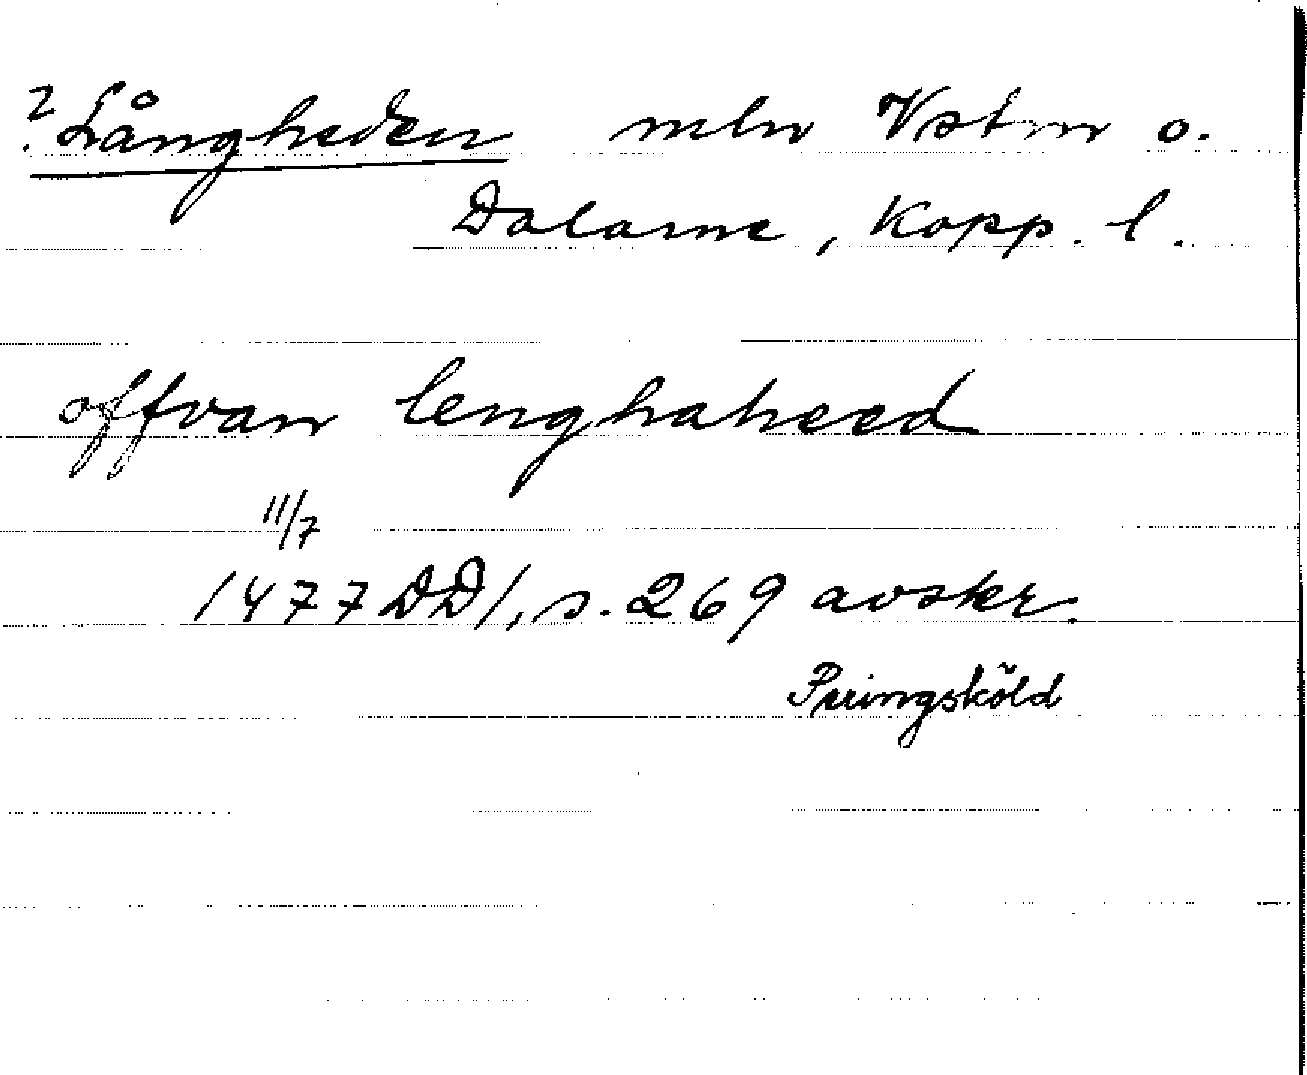 ? Långheden mln Vstm o.
Dalarne, Kopp. l.
offvan lenghaheed
11/7
1477 DD 1, s. 269 avskr.
Peringsköld